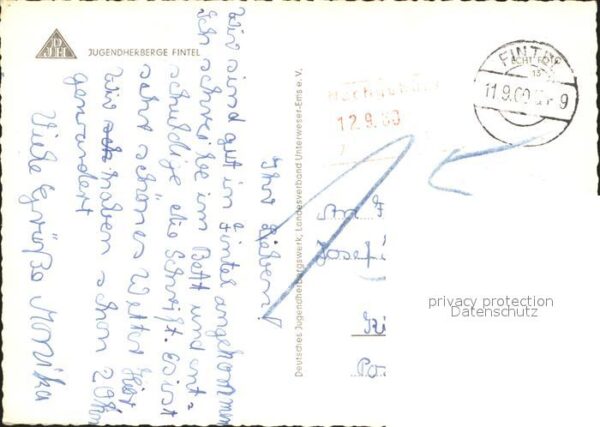 DJH
JUGENDHERBERGE FINTEL
Ihr Lieben!
Wir sind gut in Fintel angekommen
Ich schreibe im Bett und ent-
schuldige die Schrift. Es ist
sehr schönes Wetter hier
Wir haben schon 20 km
gewandert
Viele Grüße Monika
Deutsches Jugendherbergswerk, Landesverband Unterweser-Ems e.V.
12.9.60
FINTEL
11.9.60
9
Josef
privacy protection
Datenschutz